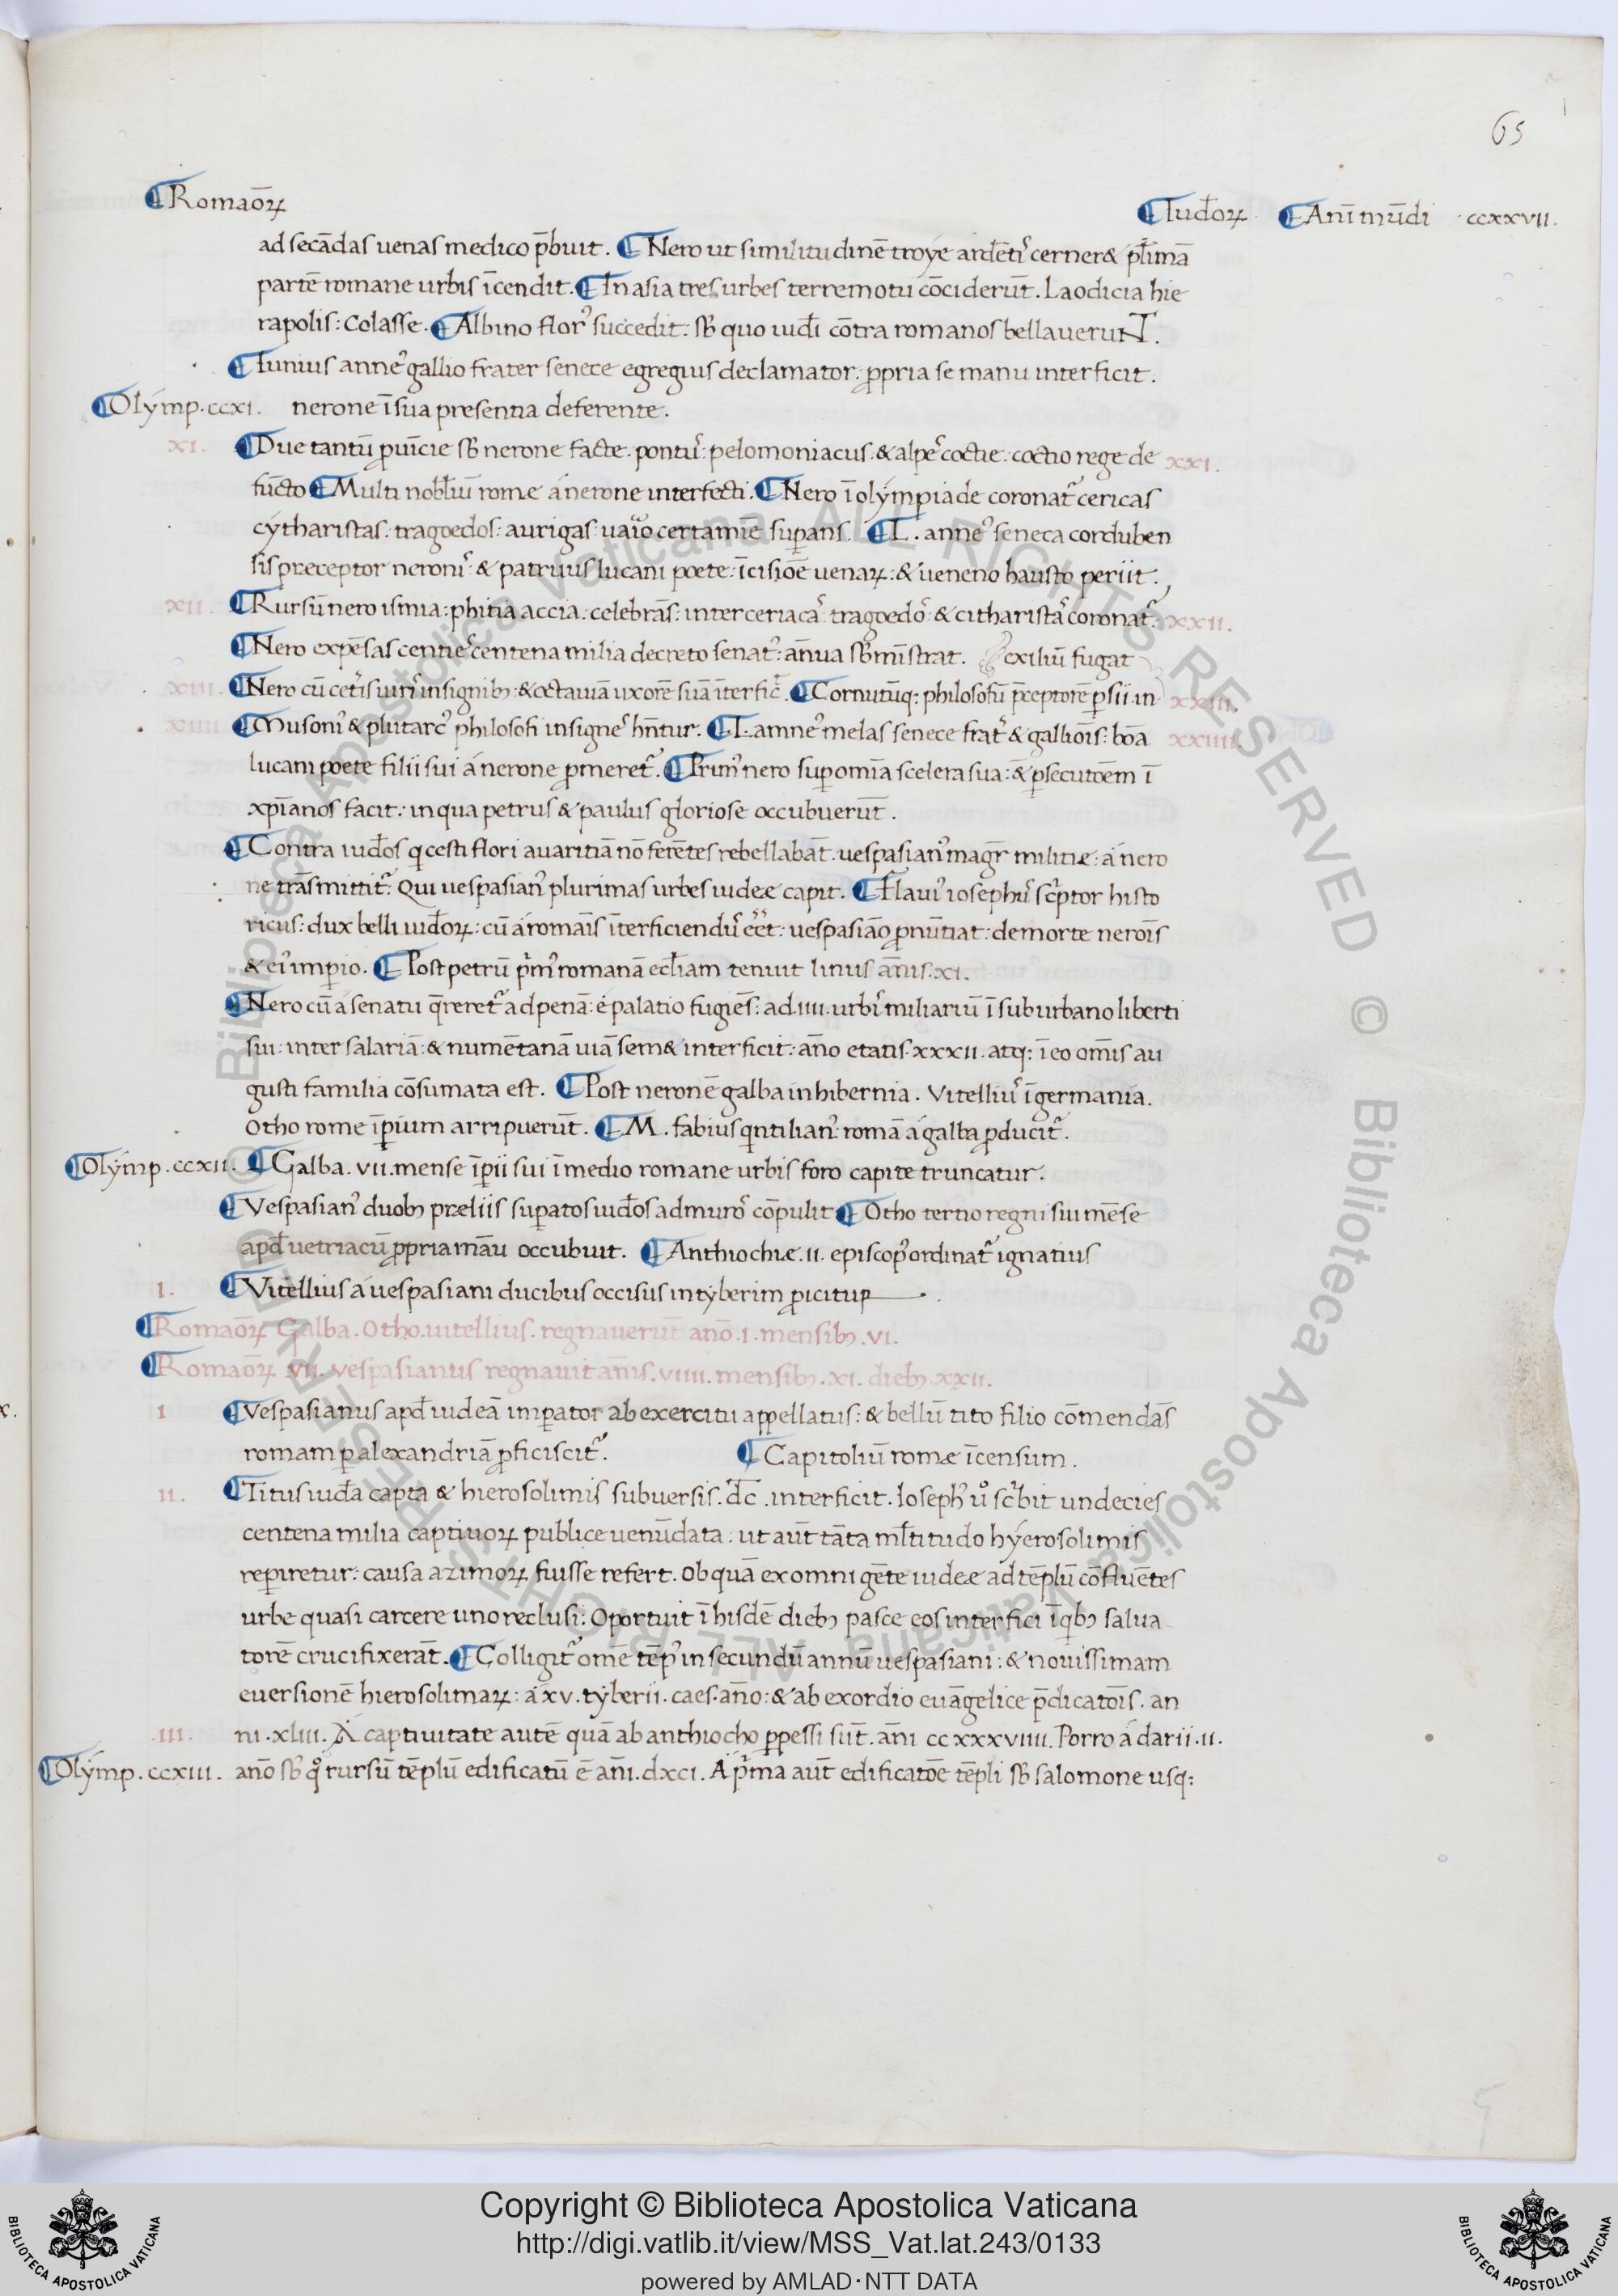 65
¶Romaōꝝ ¶Iud̄oꝝ ¶An̄i mūdi ccxxvii.
ad secādas uenas medico p̄buit. ¶Nero ut similitudinē troye ardētꝭ cerner& pl̄imā
partē romane urbis īcendit. ¶In asia tres urbes terremotu cōciderūt. Laodicia hie
rapolis: Colasse. ¶Albino florꝰ succedit: sƀ quo iud̄i cōtra romanos bellaueruNT.
¶Iunius anneꝰ gallio frater senece egregius declamator: ꝓpria se manu interficit:
¶Olymp. ccxi. nerone ī sua presentia deferente.
xi. ¶Due tantū ꝓuīcie sƀ nerone facte. pontuꝰ: pelomoniacus. & alpeꝭ coctie: coctio rege de xxi.
fūcto ¶Multi nobl̄iū rome á nerone interfecti. ¶Nero ī olympiade coronat᷑ cericas
cytharistas: tragoedos: aurigas: uaīo certamīe suꝑans. ¶L. anneꝰ seneca corduben
sis preceptor neronꝭ: & patruus lucani poete: īcisiōe uenaꝝ: & ueneno hausto periit.
xii. ¶Rursū nero ismia: phitia accia: celebrās: inter ceriacaꝭ: tragoedoꝭ & citharistaꝭ coronat᷑: xxii.
¶Nero expēsas centieꝭ centena milia decreto senatꝰ: ān̄ua sƀmīstrat. exiliū fugat
xiii. ¶Nero cū cet̄is uirꝭ insignibꝫ: & octauiā uxorē suā īterfic̄. ¶Cornutūq: philosofū p̄ceptorē ꝑsii in xxiii.
xiiii. ¶Musonꝰ & plutarcꝰ philosofi insigneꝭ hn̄tur. ¶L. amneꝰ melas senece frat̄ & galliōis: bōa xxiiii.
lucani poete filii sui á nerone ꝓmeret᷑. ¶Primꝰ nero suꝑ omīa scelera sua: ē ꝑsecutōem ī
xp̄ianos facit: in qua petrus & paulus gloriose occubuerūt.
¶Contra iud̄os q cesti flori auaritiā nō ferētes rebellabāt. uespasianꝰ magr̄ militiæ: á nero
ne trāsmittit᷑: Qui uespasianꝰ plurimas urbes iudeæ capit. ¶Flauiꝰ iosephuꝰ sc̄ptor histo
ricus: dux belli iud̄oꝝ: cū á romāis īterficienduꝰ eēt: uespasiāo ꝓnūtiat: de morte nerōis
& eiꝰ imꝑio. ¶Post petrū p̄mꝰ romanā eccl̄iam tenuit linus ān̄is. xi.
¶Nero cū á senatu q̄reret᷑ ad penā: é palatio fugiēs: ad. iiii. urbꝭ miliariū ī suburbano liberti
sui: inter salariā: & numētanā uiā sem& interficit: ān̄o etatis. xxxii. atq: ī eo om̄is au
gusti familia cōsumata est. ¶Post neronē galba in hibernia. Vitelliuꝰ ī germania.
Otho rome īꝑium arripuerūt. ¶M. fabius qntilianꝰ: romā á galba ꝓducit᷑.
¶Olymp. ccxii. ¶Galba. vii. mense īꝑii sui ī medio romane urbis foro capite truncatur.
¶Vespasianꝰ duobꝫ præliis suꝑatos iud̄os ad muroꝭ cōpulit ¶Otho tertio regni sui mēse
apd̄ uetriacū ꝓpria māu occubuit. ¶Anthiochiæ. ii. episcopꝰ ordinat᷑ ignatius
1. ¶Vitellius á uespasiani ducibus occisus in tyberim ꝓicitur.
¶Romaōꝝ Galba. Otho. uitellius. regnauerūt anō. 1. mensibꝫ. vi.
¶Romaōꝝ vii. vespasianus regnauit ān̄is. viiii. mensibꝫ. xi. diebꝫ. xxii.
1 ¶Vespasianus apd̄ iudeā imꝑator ab exercitu appellatus: & bellū tito filio cōmendās
romam ꝑ alexandriā ꝓficiscit᷑. ¶Capitoliū romæ īcensum.
ii. ¶Titus iud̄a capta & hierosolimis subuersis. d̄c. interficit. Iosephꝰ uͦ sc̄bit undecies
centena milia captiuoꝝ publice uenūdata: ut aūt tāta ml̄titudo hyerosolimis
reꝑiretur: causa azimoꝝ fuisse refert. ob quā ex omni gēte iudeæ ad tēplū cōfluētes
urbe quasi carcere uno reclusi: Oportuit ī hisdē diebꝫ pasce eos interfici ī qbꝫ salua
torē crucifixerāt. ¶Colligit᷑ om̄e tēpꝰ in secundū annū uespasiani: & nouissimam
euersionē hierosolimaꝝ: á xv. tyberii. caes. ān̄o: & ab exordio euāgelice p̄dicatōis. an
.iii. ni. xliii. Á captiuitate autē quā ab anthiocho ꝑpessi sūt. ān̄i ccxxxviiii. Porro á darii. ii.
¶Olymp. ccxiii. anō sƀ qͦ rursū tēplū edificatū ē an̄i. dxci. Á p̄ma aūt edificatōe tēpli sƀ salomone usq:
Copyright © Biblioteca Apostolica Vaticana
http://digi.vatlib.it/view/MSS_Vat.lat.243/0133
powered by AMLAD·NTT DATA
BIBLIOTECA APOSTOLICA VATICANA
BIBLIOTECA APOSTOLICA VATICANA
© Biblioteca Apostolica Vaticana ALL RIGHTS RESERVED © Biblioteca Apostolica Vaticana ALL RIGHTS RESERVED